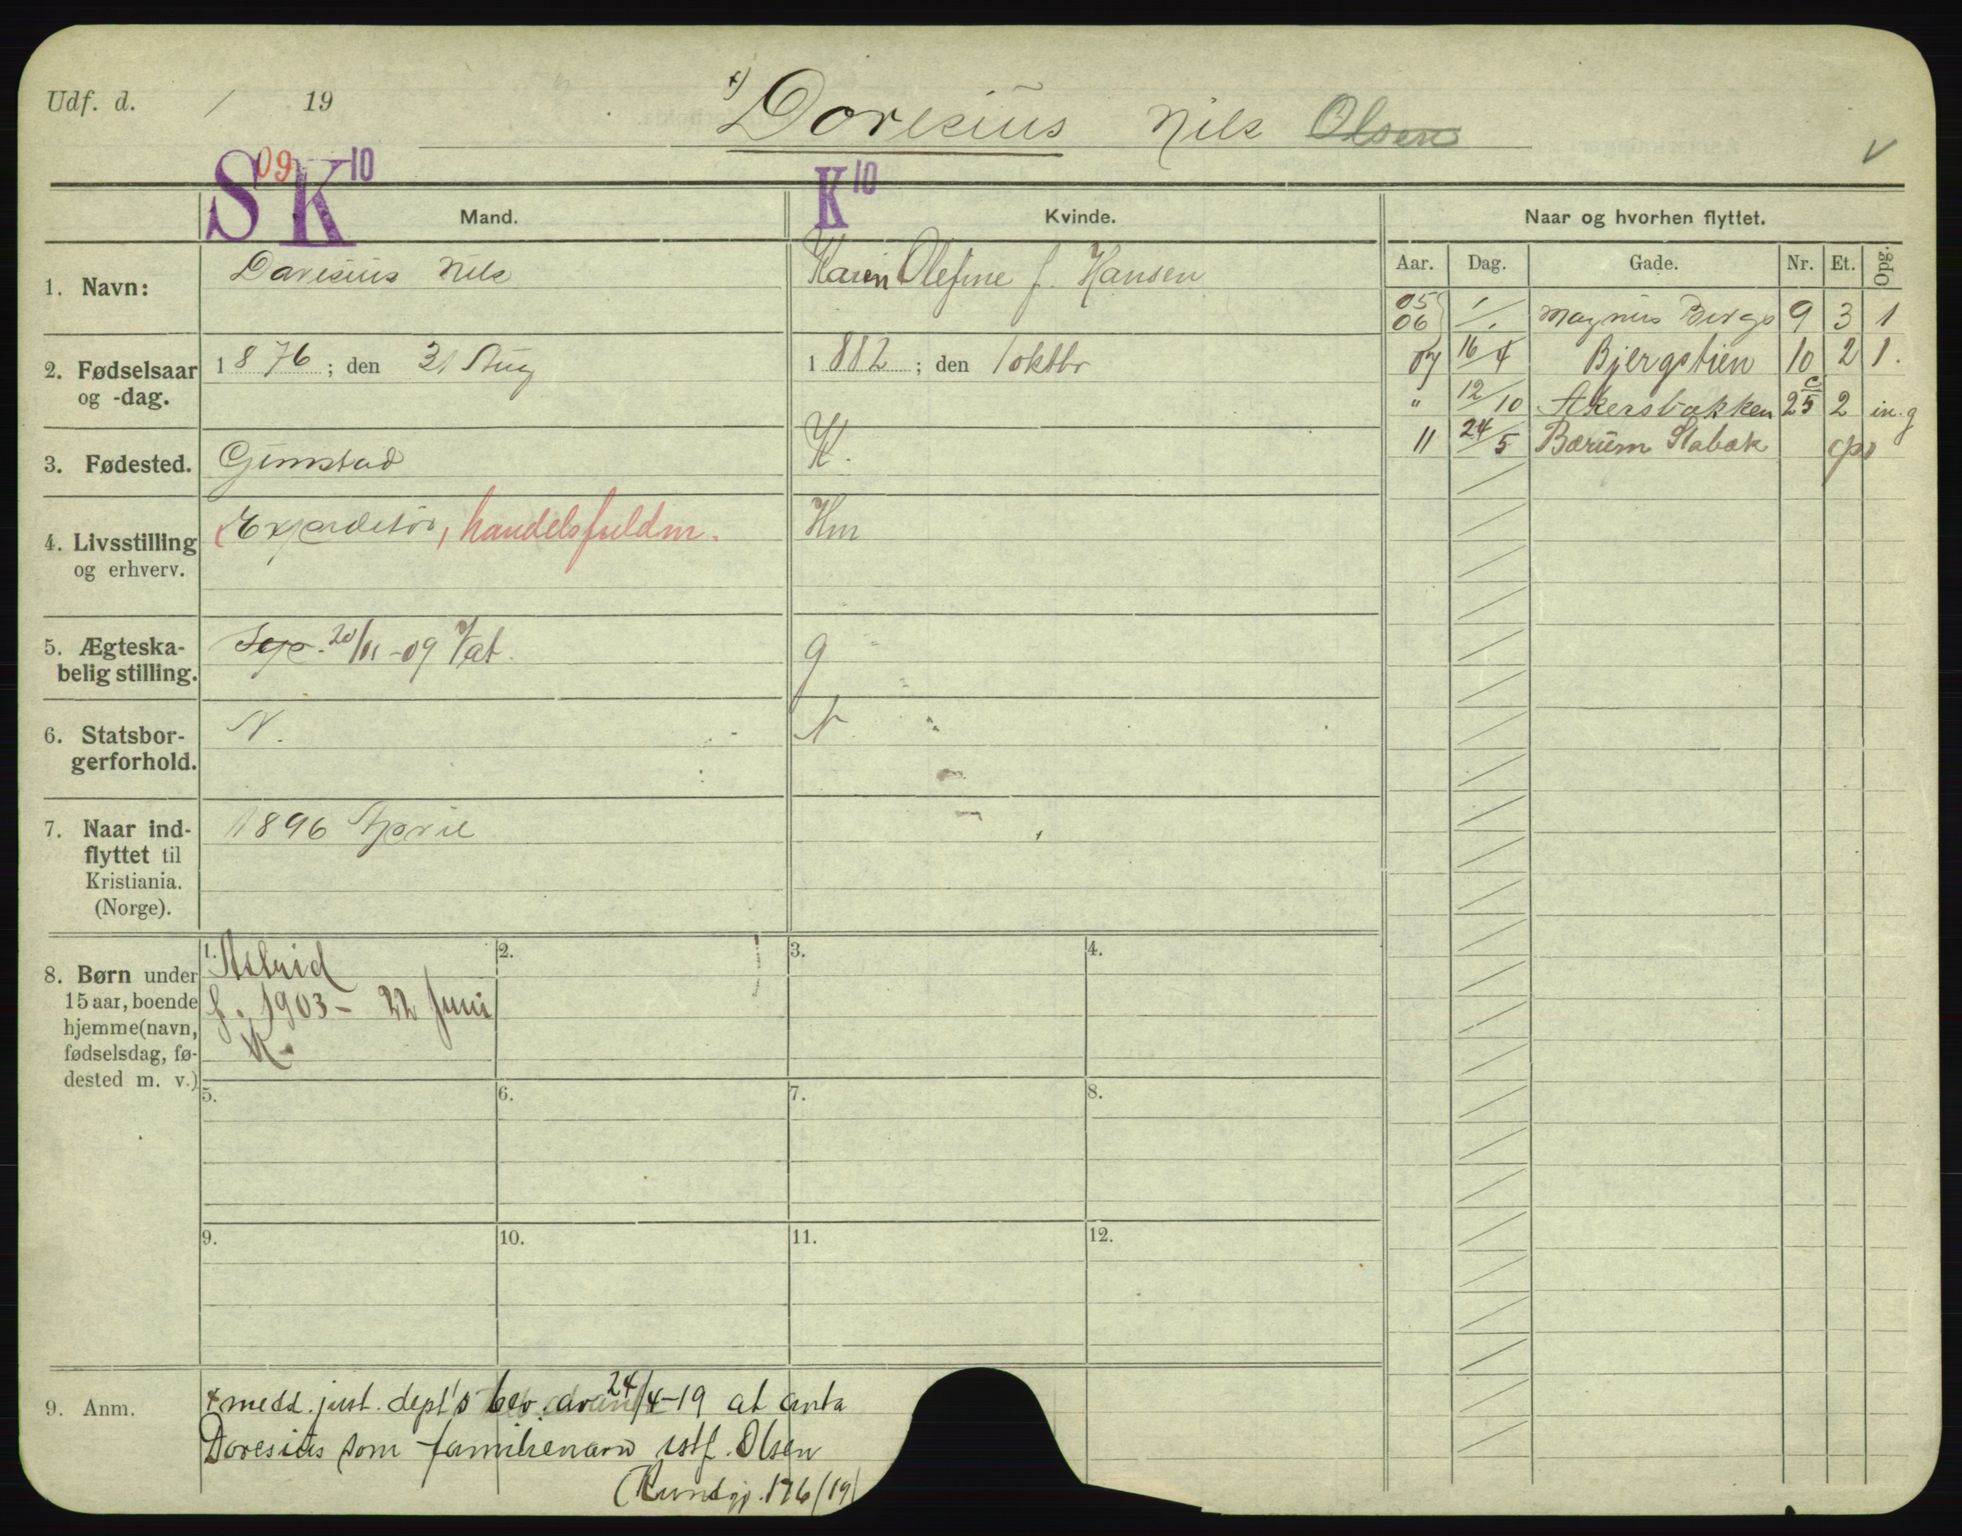 Udf. d. / 19
+) Doresius Nils Olsen
V
S 09 K 10
K 10
Mand.
Kvinde.
Naar og hvorhen flyttet.
Aar. Dag. Gade. Nr. Et. Opg.
1. Navn:
Doresius Nils
Karen Olefine f. Hansen
05
06 / Magnus Bergs 9 3 1
07 16/4 Bjergstien 10 2 1.
" 12/10 Akersbakken 25 c 2 in.g
11 24/5 Bærum Stabæk
2. Fødselsaar
og -dag.
1876; den 31 Aug
1882; den 1 oktbr
3. Fødested.
Grimstad
K.
4. Livsstilling
og erhverv.
(Expeditør, handelsfuldm.
Hm
5. Ægteska-
belig stilling.
Sep. 20/11-09
g
6. Statsbor-
gerforhold.
N.
N
7. Naar ind-
flyttet til
Kristiania.
(Norge).
1896 April
8. Børn under
15 aar, boende
hjemme (navn,
fødselsdag, fø-
dested m. v.)
1. Astrid
f. 1903 - 22 Juni
K.
2.
3.
4.
5.
6.
7.
8.
9.
10.
11.
12.
9. Anm.
+ medd. just. dept's bev. av 24/4-19 at anta
Doresius som familienavn istf. Olsen
(Kundgj. 176/19)